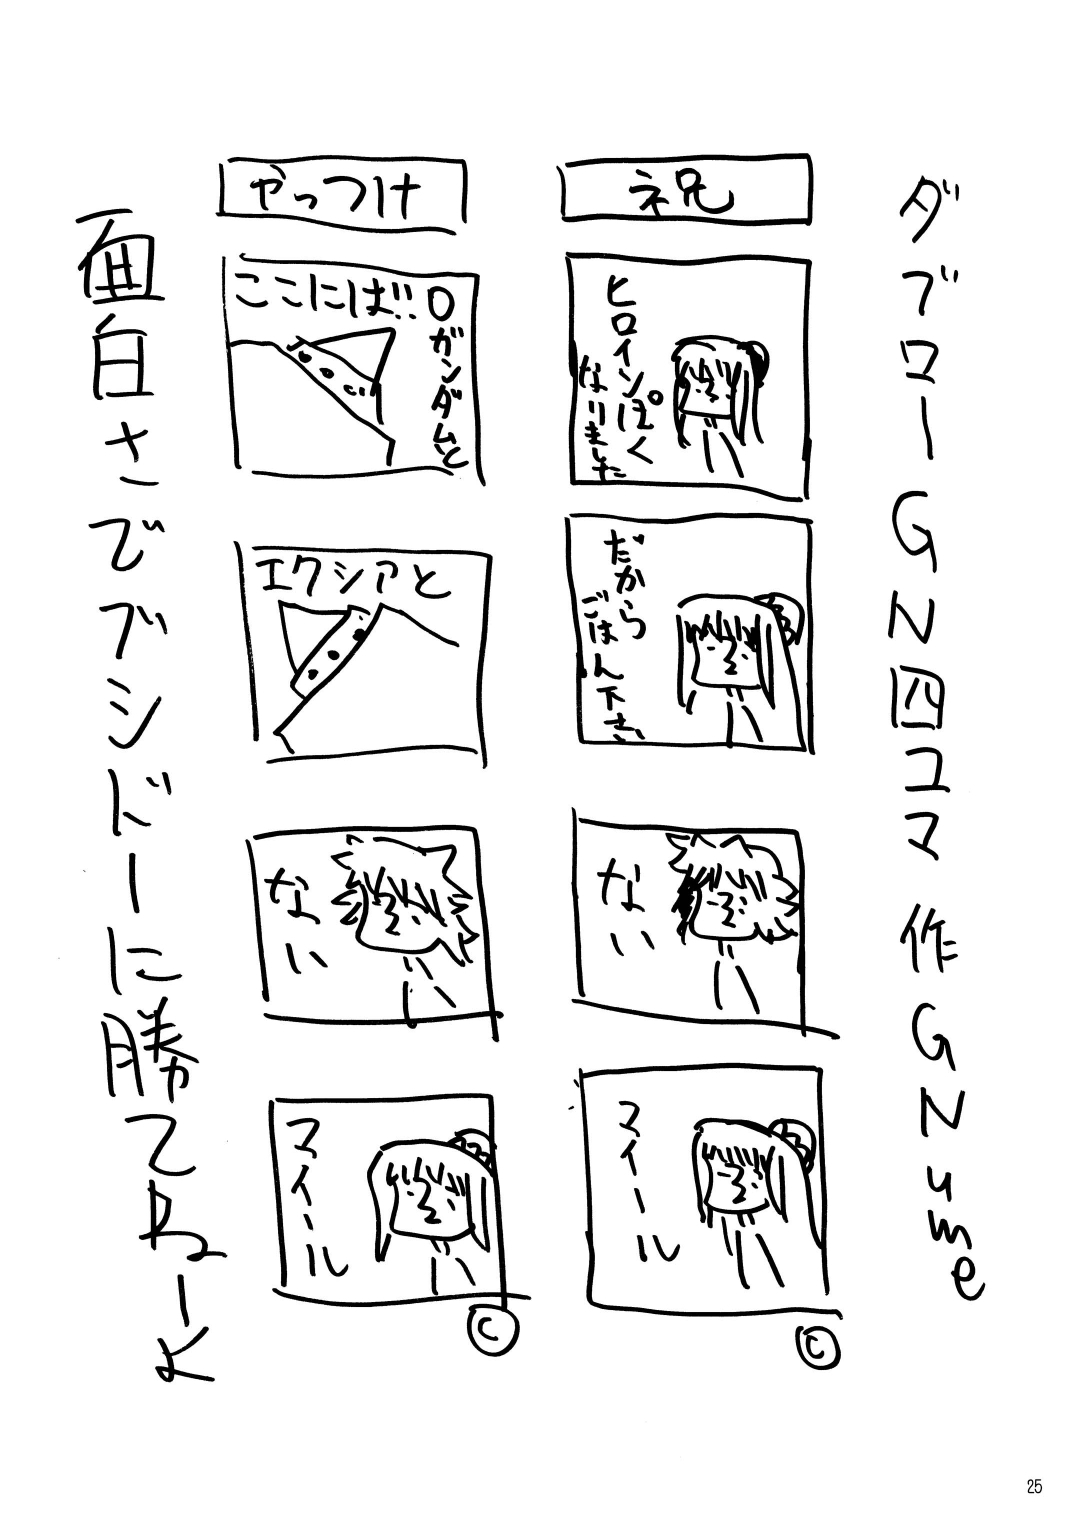 ダブローGN四コマ 作GNume
祝
ヒロインぽく
なりました
だから
ごはん下さい
ない
マイール
©
やっつけ
ここには!!
0ガンダムと
エクシアと
ない
マイール
©
面白さでブシドーに勝てねーよ
25